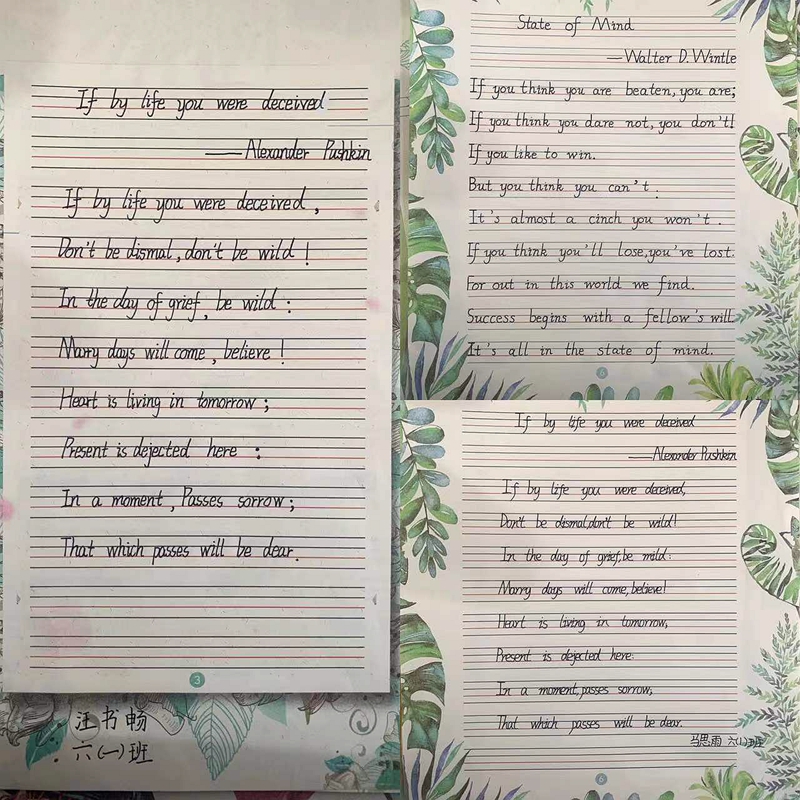 If by life you were deceived
——Alexander Pushkin
If by life you were deceived,
Don't be dismal, don't be wild!
In the day of grief, be wild:
Marry days will come, believe!
Heart is living in tomorrow;
Present is dejected here:
In a moment, Passes sorrow;
That which passes will be dear.
3
汪书畅
六(一)班
State of Mind
—Walter D. Wintle
If you think you are beaten, you are;
If you think you dare not, you don't!
If you like to win.
But you think you can't.
It's almost a cinch you won't.
If you think you'll lose, you've lost.
For out in this world we find.
Success begins with a fellow's will
It's all in the state of mind.
6
If by life you were deceived
——Alexander Pushkin
If by life you were deceived,
Don't be dismal, don't be wild!
In the day of grief, be mild:
Marry days will come, believe!
Heart is living in tomorrow;
Present is dejected here:
In a moment, passes sorrow;
That which passes will be dear.
马思雨 六(1)班
6